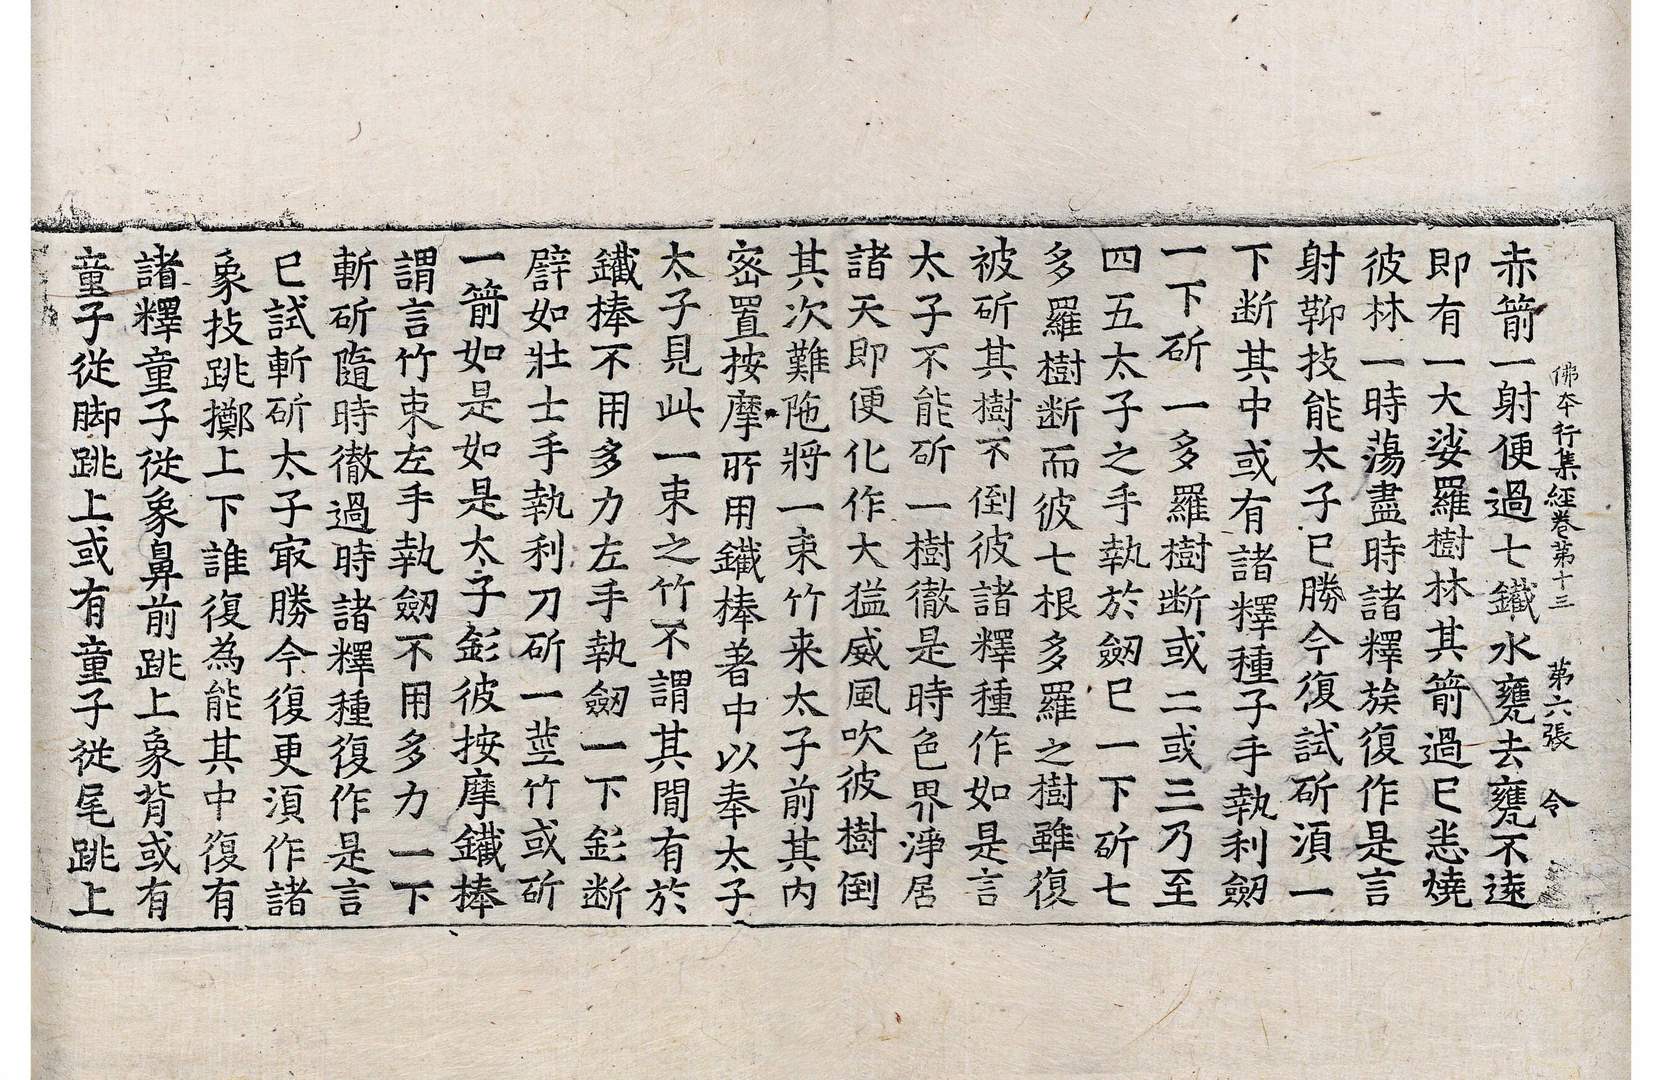 佛本行集經卷第十三 第六張 令
赤箭一射便過七鐵水甕去甕不遠
即有一大娑羅樹林其箭過已恙燒
彼林一時蕩盡時諸釋族復作是言
射鞆技能太子已勝今復試斫湏一
下断其中或有諸釋種子手執利劒
一下斫一多羅樹断或二或三乃至
四五太子之手執於劒已一下斫七
多羅樹断而彼七根多羅之樹雖復
被斫其樹不倒彼諸釋種作如是言
太子不能斫一樹徹是時色界淨居
諸天即便化作大猛威風吹彼樹倒
其次難陁將一束竹来太子前其內
密置按摩所用鐵棒著中以奉太子
太子見此一束之竹不謂其間有於
鐵棒不用多力左手執劒一下釤断
譬如壯士手執利刀斫一莖竹或斫
一箭如是如是太子釤彼按摩鐵棒
謂言竹束左手執劒不用多力一下
斬斫隨時徹過時諸釋種復作是言
已試斬斫太子㝡勝今復更湏作諸
象技跳擲上下誰復為能其中復有
諸釋童子從象鼻前跳上象背或有
童子從脚跳上或有童子從尾跳上